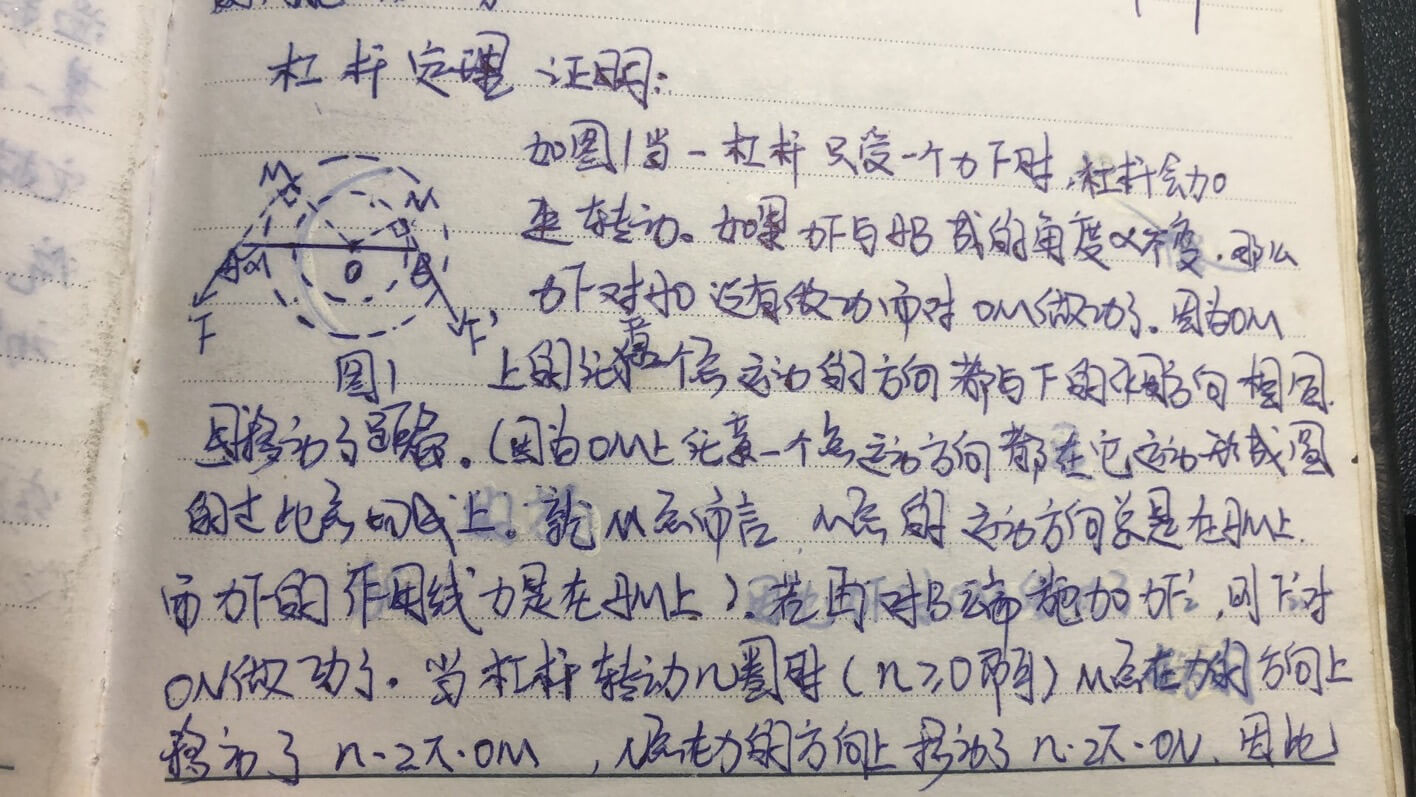 杠杆定理 证明:
如图1当一杠杆只受一个力F时,杠杆会加
速转动。如果力F与AB成的角度α不变,那么
力F对AO没有做功而对OM做功了。因为OM
上的任意一个点运动的方向都与F的作用方向相同
且移动了距离。(因为OM上任意一个点运动方向都在它运动形成圆
的过此点的切线上。就M点而言,M点的运动方向总是在AM上.
而力F的作用线也是在AM上)。若再对B端施加力F',则F'对
ON做功了。当杠杆转动n圈时(n≥0即可)M点在力的方向上
移动了 n·2π·OM ,N点在力的方向上移动了 n·2π·ON、因此
M
N
A
α
O
B
F
F'
图1